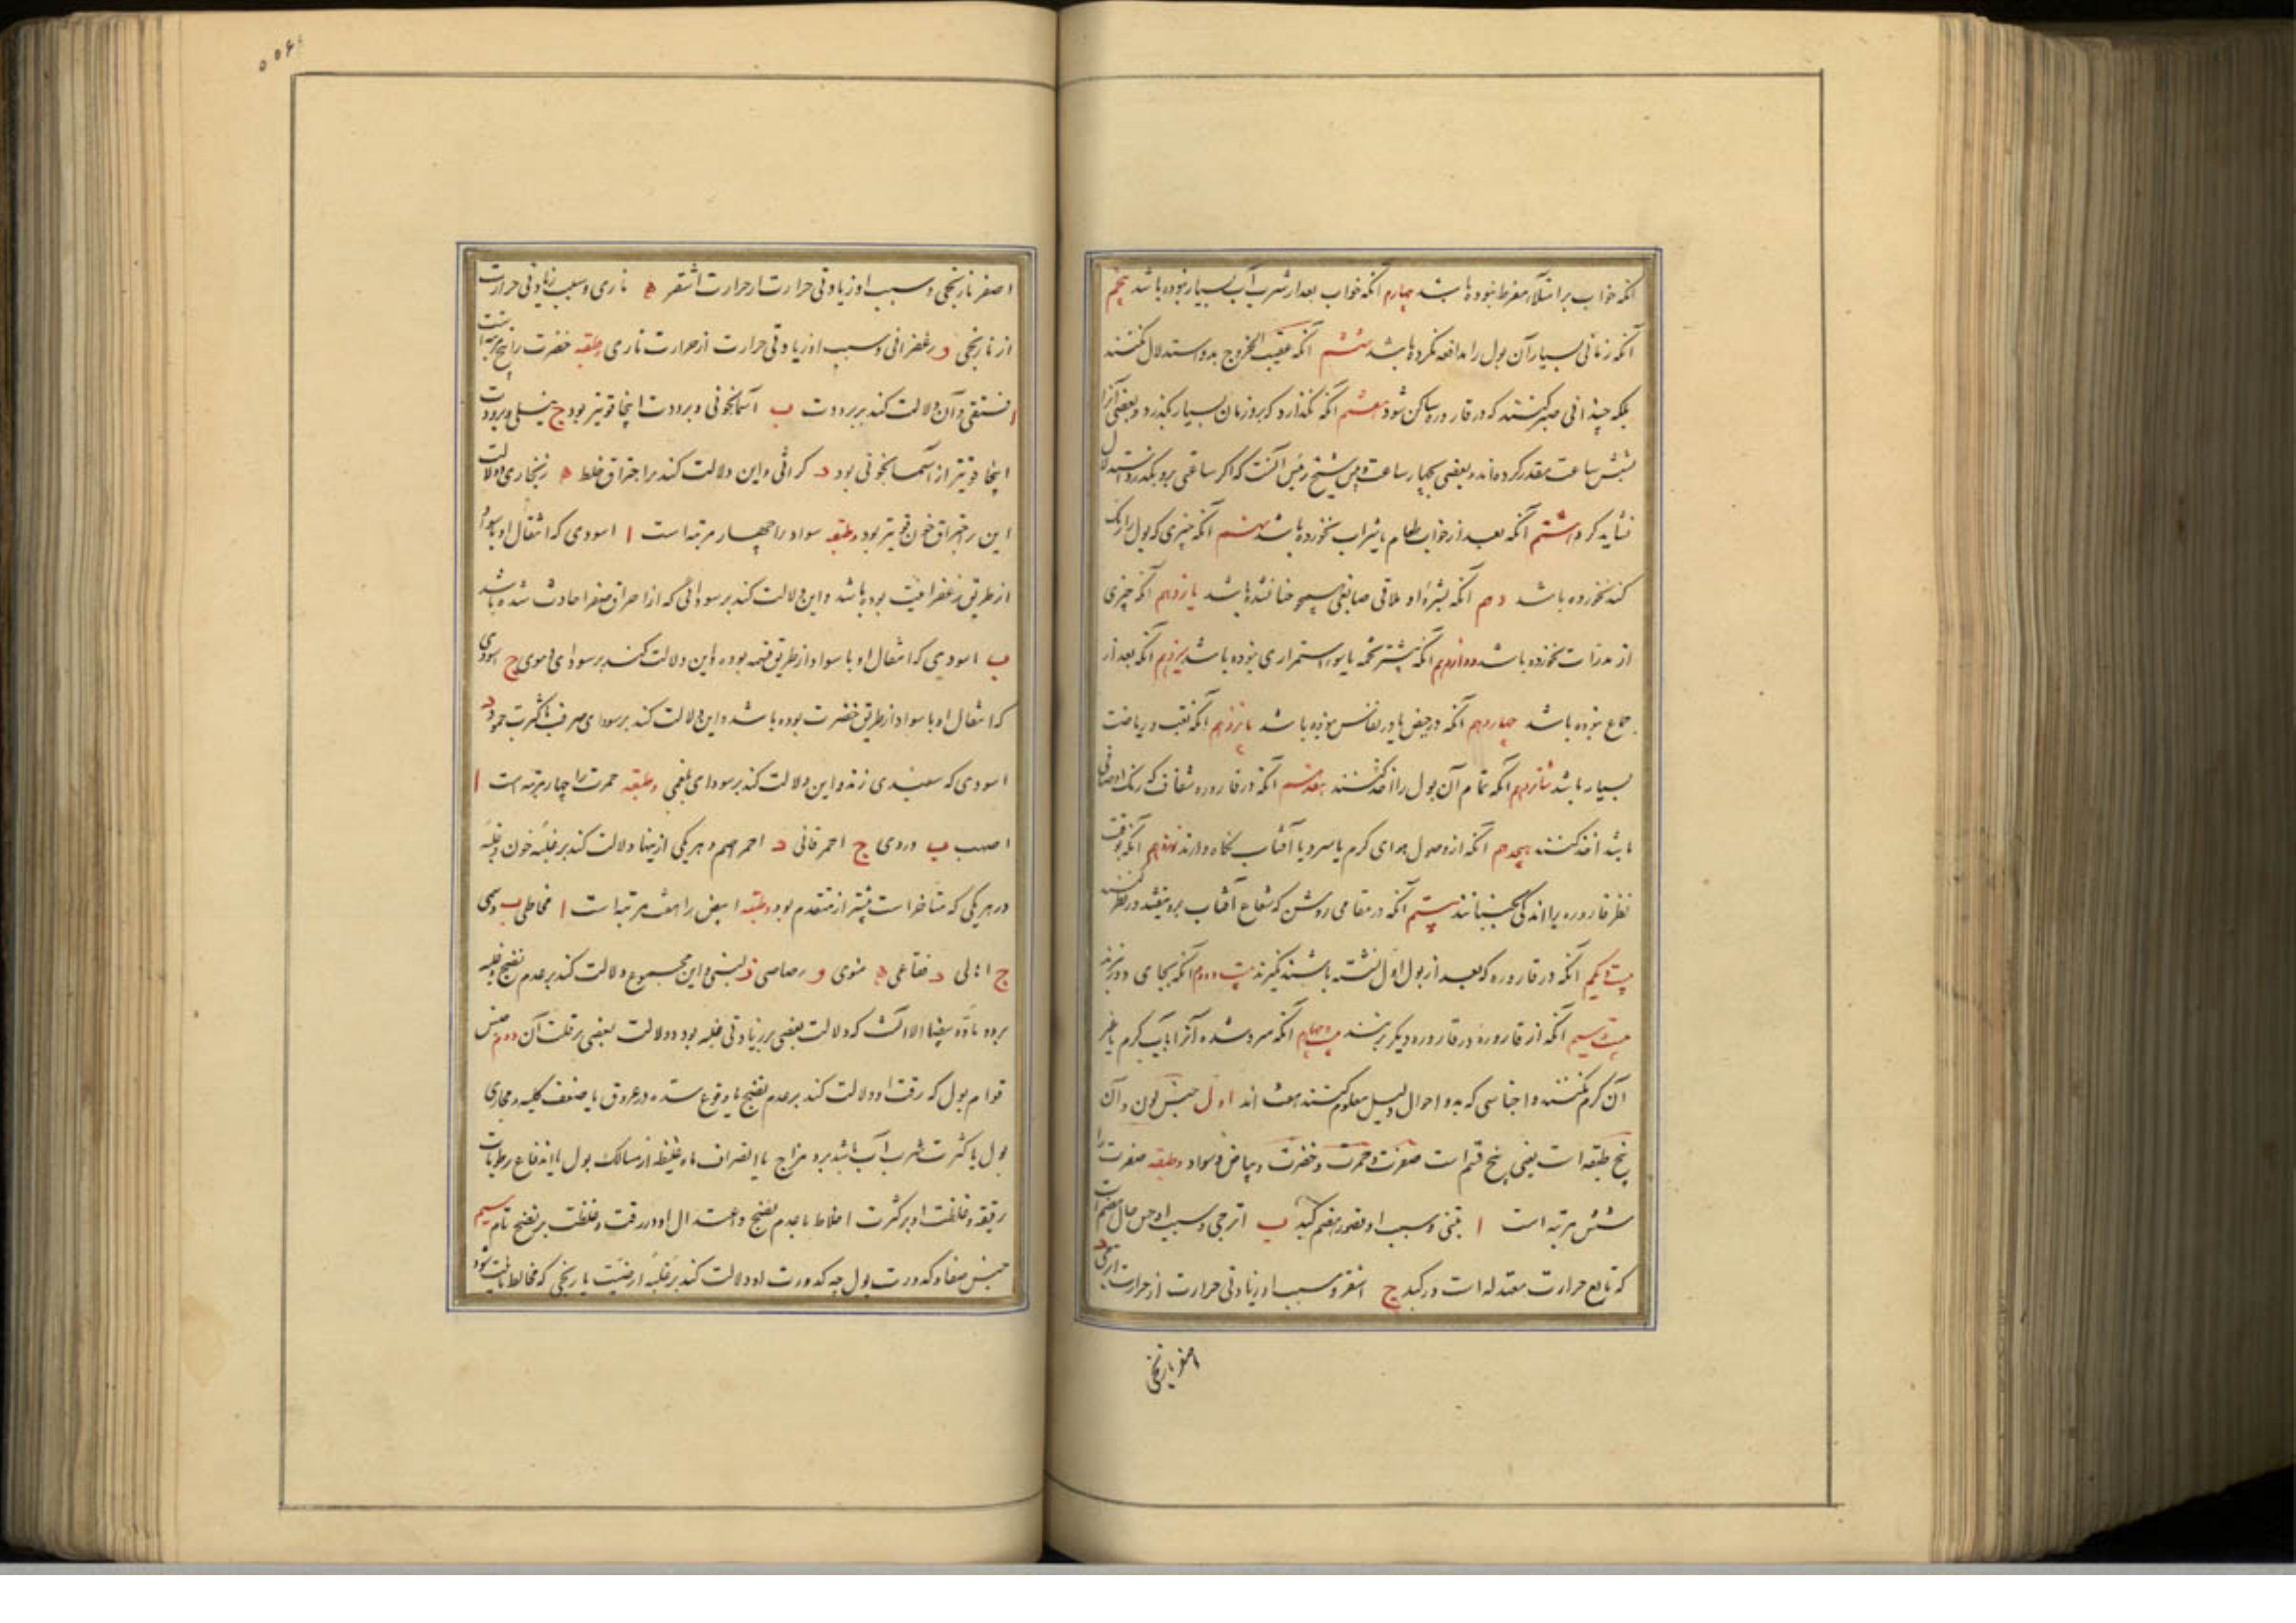 آنکه خواب بر امتلاء مفرط نبوده باشد چهارم آنکه خواب بعد از شرب آب بسیار نبوده باشد پنجم
آنکه زمانی بسیار آن بول را مدافعه نکرده باشد ششم آنکه عقیب الخروج بدو استدلال نکنند
بلکه چندانی صبر کنند که در قاروره ساکن شود هفتم آنکه نگذارد که برو زمان بسیار بگذرد و بعضی آنرا
بشش ساعت مقدر کرده‌اند و بعضی بچهار ساعت و پیش شیخ رئیس آنست که اگر ساعتی برو بگذرد استدلال
نشاید کرد هشتم آنکه بعد از خواب طعام یا شراب نخورده باشد نهم آنکه چیزی که بول را رنگ
کند نخورده باشد دهم آنکه بشرهٔ او ملاقی صابغی همچو حنا نشده باشد یازدهم آنکه چیزی
از مدرات نخورده باشد دوازدهم آنکه پیشتر تخمه یا سوء استمراری نبوده باشد سیزدهم آنکه بعد از
جماع نبوده باشد چهاردهم آنکه در حیض یا در نفاس نبوده باشد پانزدهم آنکه تعب و ریاضت
بسیار باشد شانزدهم آنکه تمام آن بول را اخذ کنند هفدهم آنکه در قاروره شفاف که رنگ او صافی
باشد اخذ کنند هیجدهم آنکه از وصول هوای گرم یا سرد یا آفتاب نگاه دارند نوزدهم آنکه بوقت
نظر قاروره را اندکی بجنبانند بیستم آنکه در مقامی روشن که شعاع آفتاب برو نیفتد در نظر کنند
بیست و یکم آنکه در قاروره که بعد از بول اول نشسته باشند نگیرند بیست و دوم آنکه بجای دور نبرند
بیست و سیم آنکه از قاروره در قاروره دیگر نریزند بیست و چهارم آنکه سرد شده آنرا بآب گرم یا غیر
آن گرم نکنند و اجناسی که بدو احوال دلیل معلوم کنند هفت اند اول جنس لون و آن
پنج طبقه است یعنی پنج قسم است صفرت و حمرت و خضرت و بیاض و سواد و طبقه صفرت را
شش مرتبه است ا تبنی و سبب او قصور هضم کبد ب اترجی و سبب او حسن حال هضم است
که تابع حرارت معتدله است در کبد ج اشقر و سبب او زیادتی حرارت از حرارت اترجی د
اصفر نارنجی
اصفر نارنجی و سبب او زیادتی حرارت از حرارت اشقر ه ناری و سبب زیادتی حرارت
از نارنجی و زعفرانی و سبب او زیادتی حرارت از حرارت ناری و طبقه خضرت را پنج مرتبه است
ا فستقی و آن دلالت کند بر برودت ب آسمانجونی و برودت اینجا قویتر بود ج نیلی و برودت
اینجا قویتر از آسمانجونی بود د کراثی و این دلالت کند بر احتراق خلط ه زنجاری و دلالت
این بر احتراق خون قویتر بود و طبقه سواد را چهار مرتبه است ا اسودی که انتقال او بسواد
از طریق زعفرانیت بوده باشد و این دلالت کند بر سودائی که از احراق صفرا حادث شده باشد
ب اسودی که انتقال او با سواد از طریق قتمه بوده و این دلالت کند بر سودای دموی ج اسودی
که انتقال او با سواد از طریق خضرت بوده باشد و این دلالت کند بر سودای صرف یا کثرت جمود د
اسودی که سفیدی زند و این دلالت کند بر سودای بلغمی و طبقه حمرت را چهار مرتبه است ا
اصهب ب وردی ج احمر قانی د احمر اسهم و هر یکی ازینها دلالت کند بر غلبه خون و غلبه
در هر یکی که متأخر است بیشتر از متقدم بود و طبقه ابیض را هفت مرتبه است ا مخاطی ب دسمی
ج اهالی د فقاعی ه منوی و رصاصی ز لبنی و این مجموع دلالت کند بر عدم نضج و غلبه
برد و ماده بیضا الا آنست که دلالت بعضی بر زیادتی غلبه بود و دلالت بعضی بر قلت آن دوم جنس
قوام بول که رقت او دلالت کند بر عدم نضج یا وقوع سده در عروق یا ضعف کلیه و مجاری
بول یا کثرت شرب آب یا شد برد مزاج یا انصراف ماده غلیظه از مسالک بول یا اندفاع رطوبات
رقیقه و غلظت او بر کثرت اخلاط یا عدم نضج و اعتدال او در رقت و غلظت بر نضج تام سیم
جنس صفا و کدورت بول چه کدورت او دلالت کند بر غلبه ارضیت یا ریحی که مخالط مائیت شود